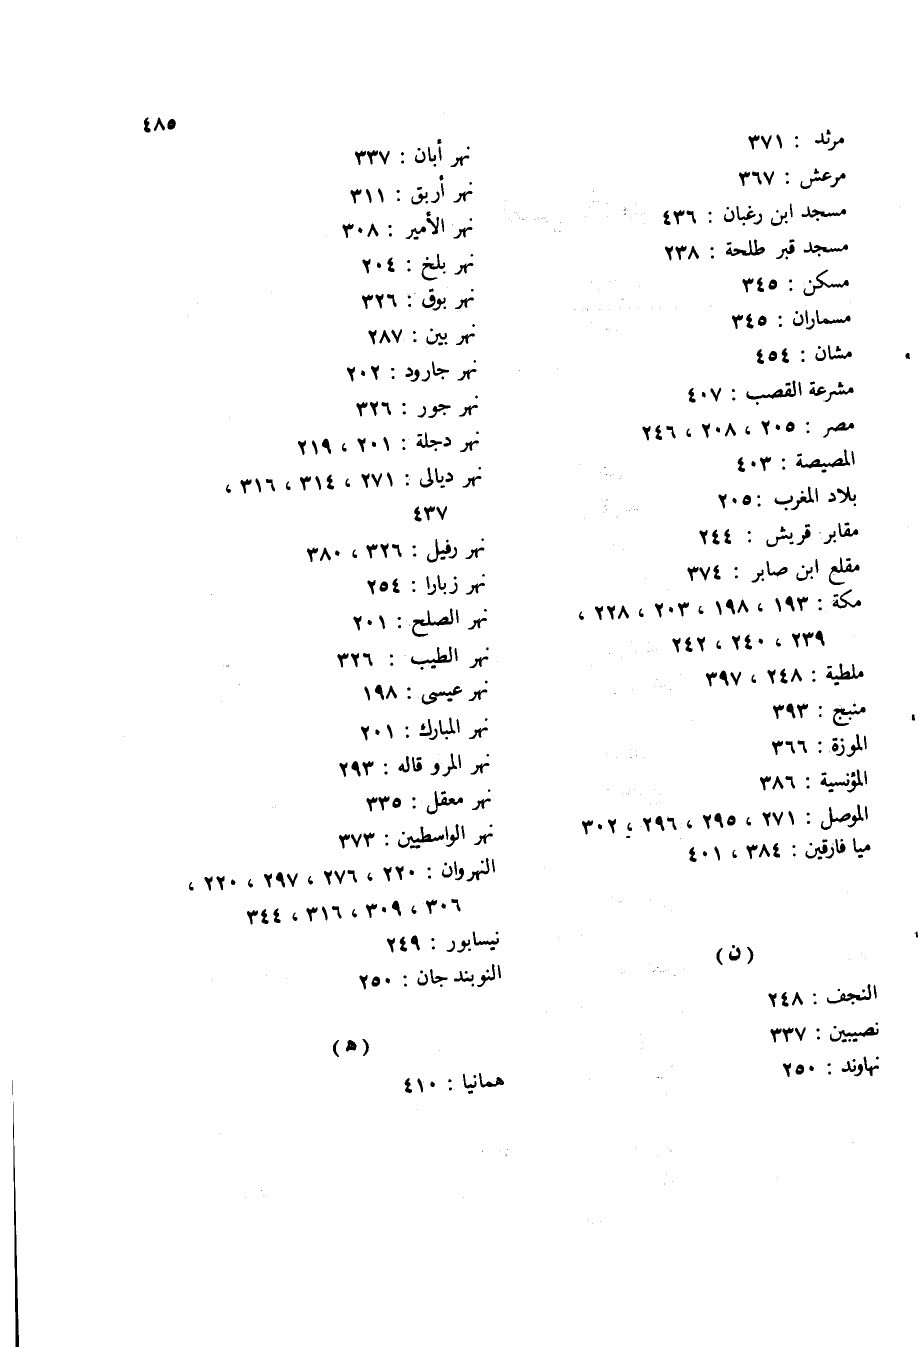 ٤٨٥
مرثد : ٣٧١
مرعش : ٣٦٧
مسجد ابن رغبان : ٤٣٦
مسجد قبر طلحة : ٢٣٨
مسكن : ٣٤٥
مسماران : ٣٤٥
مشان : ٤٥٤
مشرعة القصب : ٤٠٧
مصر : ٢٠٥ ، ٢٠٨ ، ٢٤٦
المصيصة : ٤٠٣
بلاد المغرب : ٢٠٥
مقابر قريش : ٢٤٤
مقلع ابن صابر : ٣٧٤
مكة : ١٩٣ ، ١٩٨ ، ٢٠٣ ، ٢٢٨ ،
٢٣٩ ، ٢٤٠ ، ٢٤٢
ملطية : ٢٤٨ ، ٣٩٧
منبج : ٣٩٣
الموزة : ٣٦٦
المؤنسية : ٣٨٦
الموصل : ٢٧١ ، ٢٩٥ ، ٢٩٦ ، ٣٠٢
ميا فارقين : ٣٨٤ ، ٤٠١
( ن )
النجف : ٢٤٨
نصيبين : ٣٣٧
نهاوند : ٢٥٠
نهر أبان : ٣٣٧
نهر أربق : ٣١١
نهر الأمير : ٣٠٨
نهر بلخ : ٢٠٤
نهر بوق : ٣٢٦
نهر بين : ٢٨٧
نهر جارود : ٢٠٢
نهر جور : ٣٢٦
نهر دجلة : ٢٠١ ، ٢١٩
نهر ديالى : ٢٧١ ، ٣١٤ ، ٣١٦ ،
٤٣٧
نهر رفيل : ٣٢٦ ، ٣٨٠
نهر زبارا : ٢٥٤
نهر الصلح : ٢٠١
نهر الطيب : ٣٢٦
نهر عيسى : ١٩٨
نهر المبارك : ٢٠١
نهر المرو قاله : ٢٩٣
نهر معقل : ٣٣٥
نهر الواسطيين : ٣٧٣
النهروان : ٢٢٠ ، ٢٧٦ ، ٢٩٧ ، ٢٢٠ ،
٣٠٦ ، ٣٠٩ ، ٣١٦ ، ٣٤٤
نيسابور : ٢٤٩
النوبند جان : ٢٥٠
( ه )
همانيا : ٤١٠